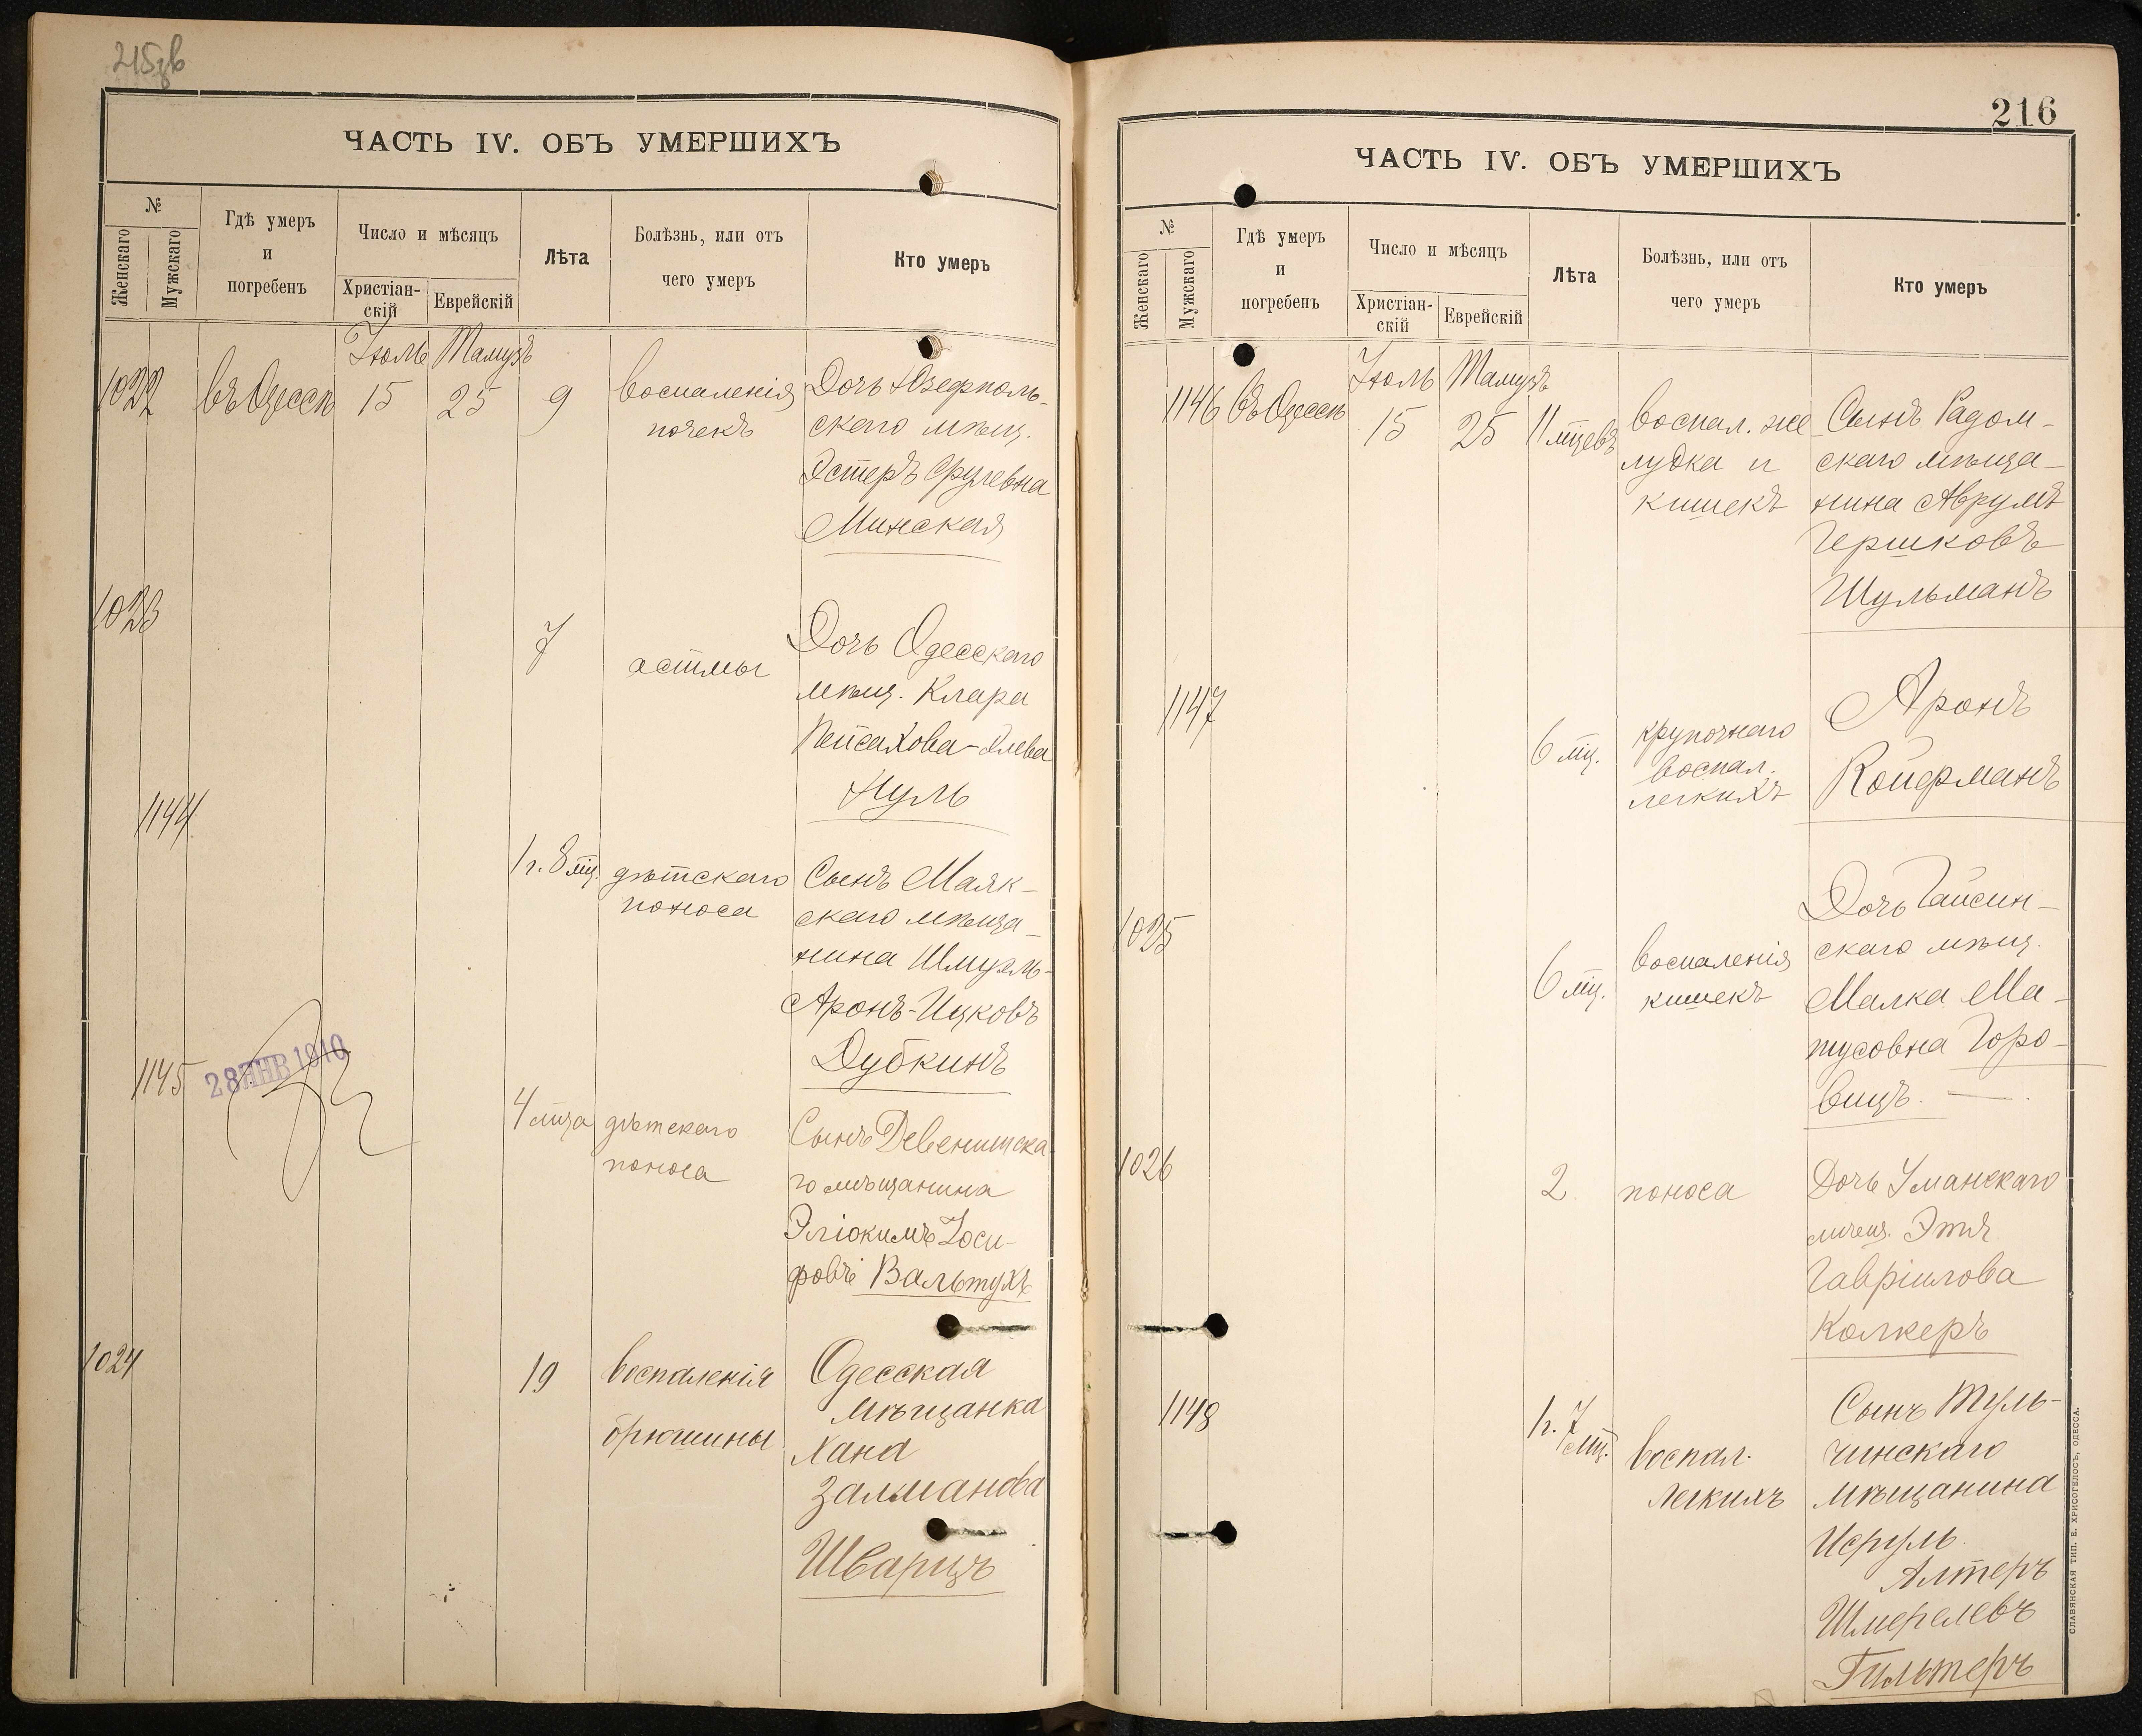 215зв
ЧАСТЬ IV. ОБЪ УМЕРШИХЪ
№
Женскаго
Мужскаго
Гдѣ умеръ
и
погребенъ
Число и мѣсяцъ
Христіан-
скій
Еврейскій
Лѣта
Болѣзнь, или отъ
чего умеръ
Кто умеръ
Іюль Тамузъ
1022 въ Одессѣ 15 25 9
воспаленія
почекъ
Дочь Юзефполь-
скаго мѣщ.
Эстеръ Срулевна
Минская
1023
7
астмы
Дочь Одесскаго
мѣщ. Клара
Пейсахова-
Нуль
1144
1 г. 8 мц.
дѣтскаго
поноса
Сынъ Маяк-
скаго мѣща-
нина Шмуль-
Аронъ-Ицковъ
Дубкинъ
1145
28 ЯНВ 1910
4 мца
дѣтскаго
поноса
Сынъ Девенишска
го мѣщанина
Эліокимъ Іоси-
фовъ Вальтухъ
1024
19
воспаленія
брюшины
Одесская
мѣщанка
Хана
Залманова
Шварцъ
216
ЧАСТЬ IV. ОБЪ УМЕРШИХЪ
№
Женскаго
Мужскаго
Гдѣ умеръ
и
погребенъ
Число и мѣсяцъ
Христіан-
скій
Еврейскій
Лѣта
Болѣзнь, или отъ
чего умеръ
Кто умеръ
Іюль Тамузъ
1146 въ Одессѣ 15 25 11 мцевъ
воспал. же
лудка и
кишекъ
Сынъ Радом-
скаго мѣща-
нина Аврумъ
Гершковъ
Шульманъ
1147
6 мц.
крупочнаго
воспал.
легкихъ
Аронъ
Койфманъ
1025
6 мц.
воспаленія
кишекъ
Дочь Гайсин-
скаго мѣщ.
Малка Ма-
тусовна Горо-
вицъ.
1026
2
поноса
Дочь Уманскаго
мѣщ. Этя
Гавріилова
Колкеръ
1148
1 г. 7 мц.
воспал.
легкихъ
Сынъ Туль-
чинскаго
мѣщанина
Исруль
Алтеръ
Шмерелевъ
Гильтеръ
СЛАВЯНСКАЯ ТИП. Е. ХРИСОГЕЛОСЪ, ОДЕССА.